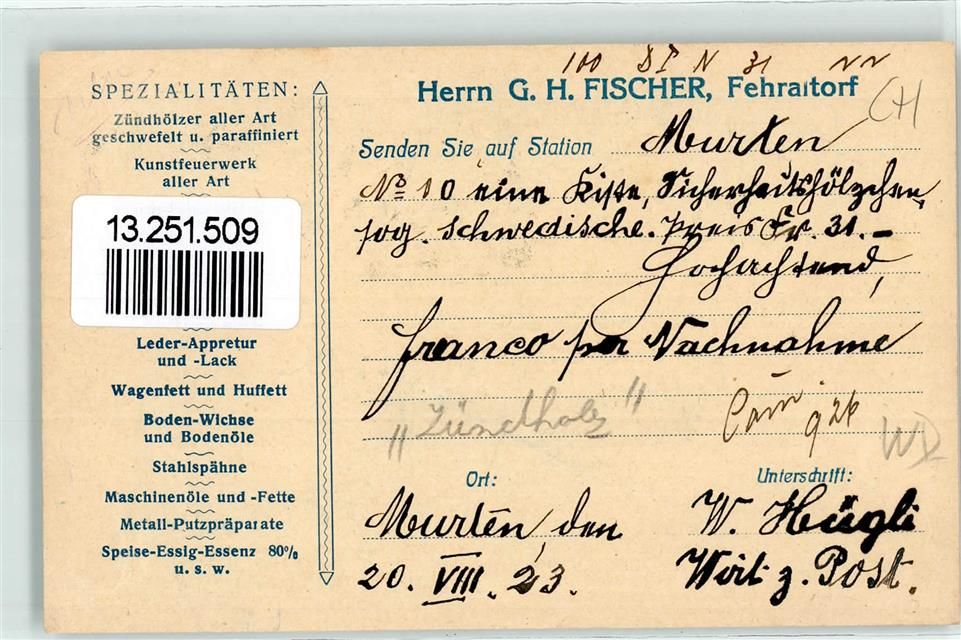 SPEZIALITÄTEN:
Zündhölzer aller Art
geschwefelt u. paraffiniert
Kunstfeuerwerk
aller Art
13.251.509
Leder-Appretur
und -Lack
Wagenfett und Huffett
Boden-Wichse
und Bodenöle
Stahlspähne
Maschinenöle und -Fette
Metall-Putzpräparate
Speise-Essig-Essenz 80%
u. s. w.
100 N 31
Herrn G. H. FISCHER, Fehraltorf
CH
Senden Sie auf Station Murten
No 10 eine Kiste, Sicherheitshölzchen,
sog. schwedische. Preis Fr. 31.–
Hochachtend,
franco per Nachnahme
„Zündholz"
WD
Ort:
Unterschrift:
Murten, den
W. Hügli
20. VIII. 23.
Wirt z. Post.